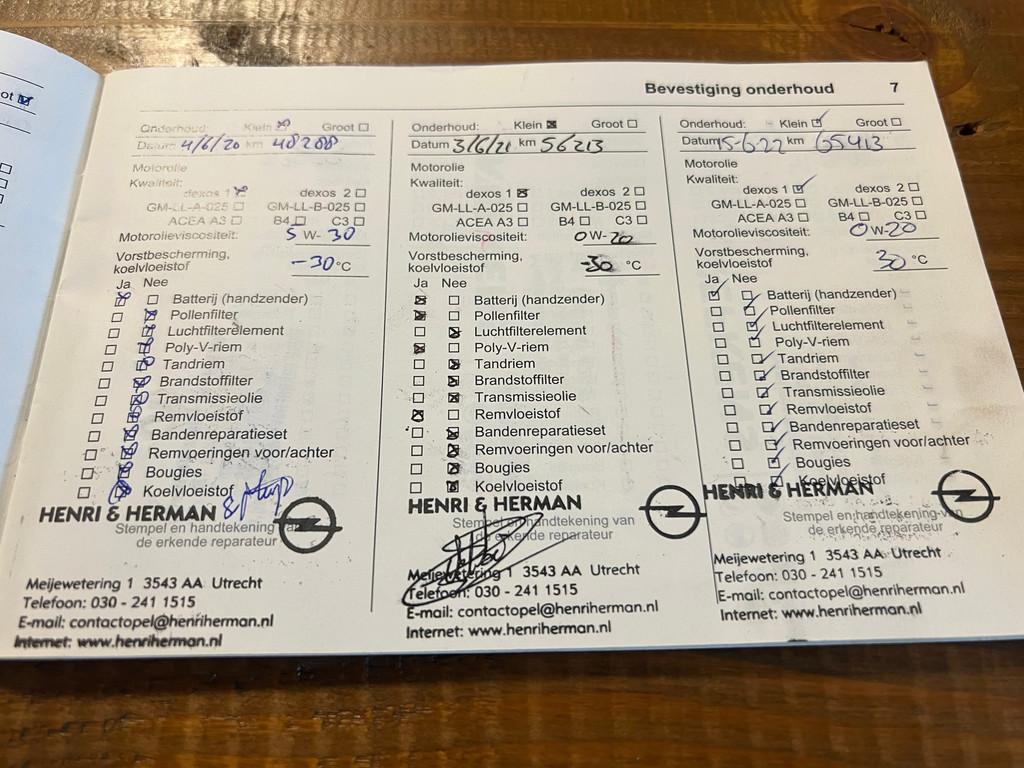 ot ☒
Bevestiging onderhoud 7
Onderhoud: Klein ☒ Groot ☐
Datum 4/6/20 km 48288
Motorolie
Kwaliteit:
dexos 1 ☒ dexos 2 ☐
GM-LL-A-025 ☐ GM-LL-B-025 ☐
ACEA A3 ☐ B4 ☐ C3 ☐
Motorolieviscositeit: 5 W- 30
Vorstbescherming,
koelvloeistof -30 °C
Ja Nee
☒ ☐ Batterij (handzender)
☐ ☒ Pollenfilter
☐ ☒ Luchtfilterelement
☐ ☒ Poly-V-riem
☐ ☒ Tandriem
☐ ☒ Brandstoffilter
☐ ☒ Transmissieolie
☐ ☒ Remvloeistof
☐ ☒ Bandenreparatieset
☐ ☒ Remvoeringen voor/achter
☐ ☒ Bougies
☐ ☒ Koelvloeistof
HENRI & HERMAN
Stempel en handtekening van
de erkende reparateur
Meijewetering 1 3543 AA Utrecht
Telefoon: 030 - 241 1515
E-mail: contactopel@henriherman.nl
Internet: www.henriherman.nl
Onderhoud: Klein ☒ Groot ☐
Datum 3/6/21 km 56213
Motorolie
Kwaliteit:
dexos 1 ☒ dexos 2 ☐
GM-LL-A-025 ☐ GM-LL-B-025 ☐
ACEA A3 ☐ B4 ☐ C3 ☐
Motorolieviscositeit: 0 W- 20
Vorstbescherming,
koelvloeistof -30 °C
Ja Nee
☒ ☐ Batterij (handzender)
☒ ☐ Pollenfilter
☐ ☒ Luchtfilterelement
☒ ☐ Poly-V-riem
☐ ☒ Tandriem
☐ ☒ Brandstoffilter
☐ ☒ Transmissieolie
☒ ☐ Remvloeistof
☐ ☒ Bandenreparatieset
☐ ☒ Remvoeringen voor/achter
☐ ☒ Bougies
☐ ☒ Koelvloeistof
HENRI & HERMAN
Stempel en handtekening van
de erkende reparateur
Meijewetering 1 3543 AA Utrecht
Telefoon: 030 - 241 1515
E-mail: contactopel@henriherman.nl
Internet: www.henriherman.nl
Onderhoud: Klein ☑ Groot ☐
Datum 15-6-22 km 65413
Motorolie
Kwaliteit:
dexos 1 ☑ dexos 2 ☐
GM-LL-A-025 ☐ GM-LL-B-025 ☐
ACEA A3 ☐ B4 ☐ C3 ☐
Motorolieviscositeit: 0 W-20
Vorstbescherming,
koelvloeistof 30 °C
Ja Nee
☑ ☐ Batterij (handzender)
☐ ☑ Pollenfilter
☐ ☑ Luchtfilterelement
☐ ☑ Poly-V-riem
☐ ☑ Tandriem
☐ ☑ Brandstoffilter
☐ ☑ Transmissieolie
☐ ☑ Remvloeistof
☐ ☑ Bandenreparatieset
☐ ☑ Remvoeringen voor/achter
☐ ☑ Bougies
☐ ☑ Koelvloeistof
HENRI & HERMAN
Stempel en handtekening van
de erkende reparateur
Meijewetering 1 3543 AA Utrecht
Telefoon: 030 - 241 1515
E-mail: contactopel@henriherman.nl
Internet: www.henriherman.nl